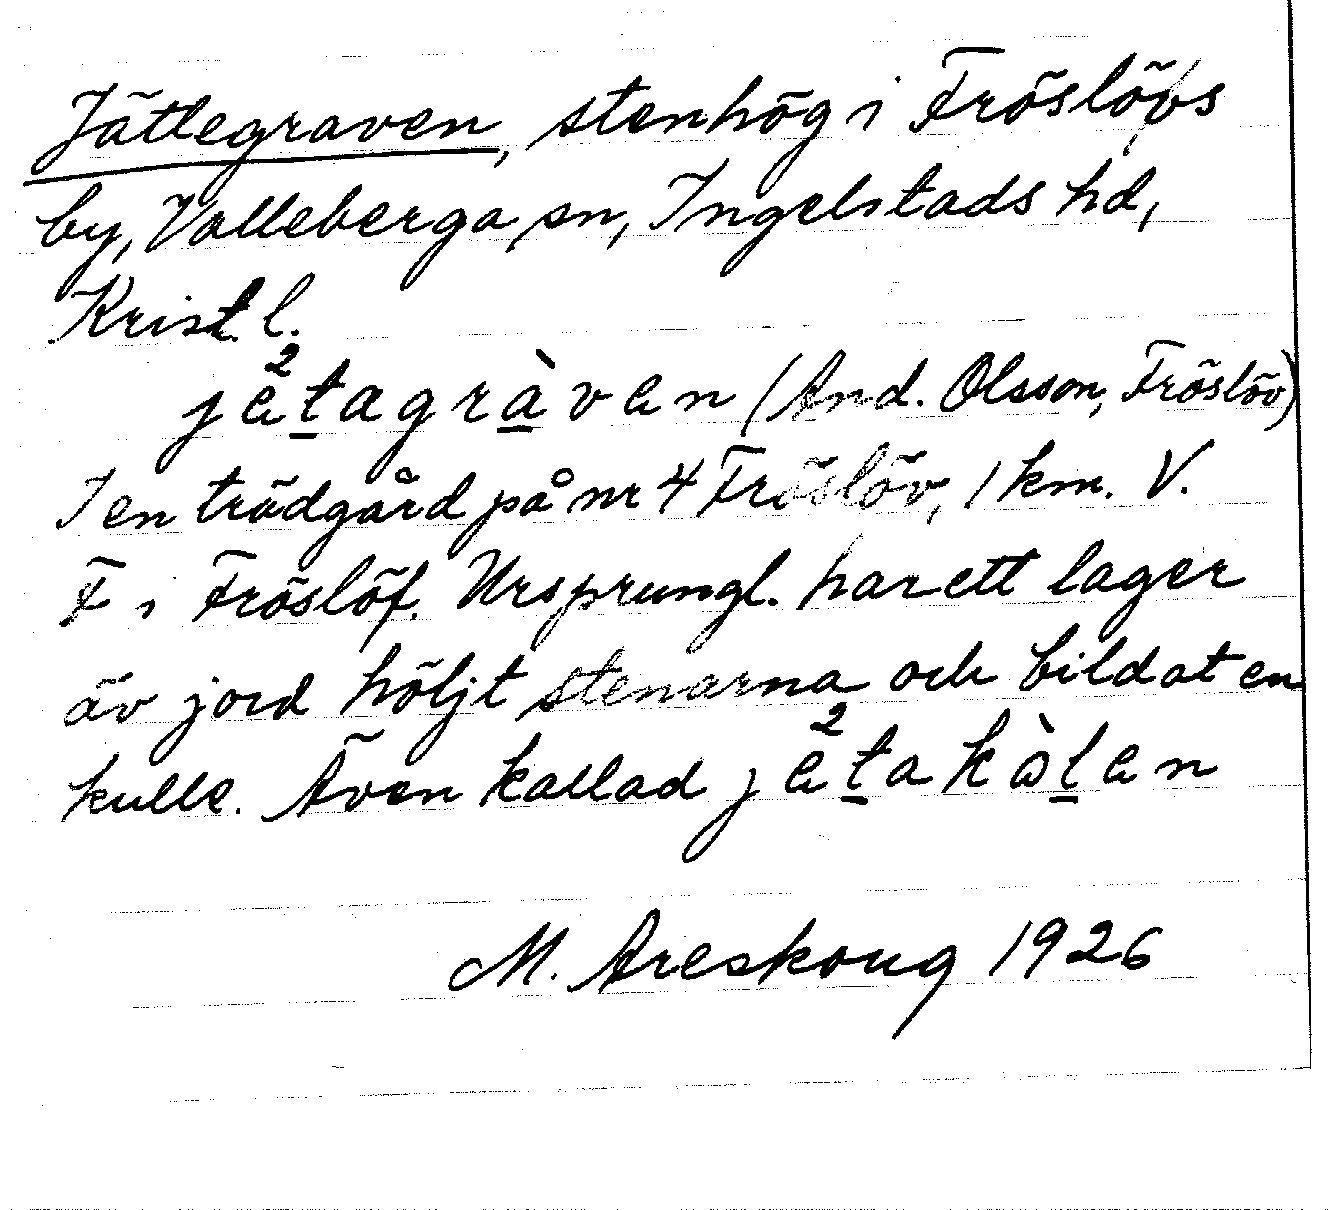 Jättegraven, stenhög i Fröslövs
by, Valleberga sn, Ingelstads hd,
Krist. l.
je²t̲agrà̲ven (And. Olsson, Fröslöv)
I en trädgård på nr 4 Fröslöv, 1 km. V.
F i Fröslöf. Ursprungl. har ett lager
äv jord höljt stenarna och bildat en
kulle. Även kallad je²t̲akòl̲en
M. Areskoug 1926